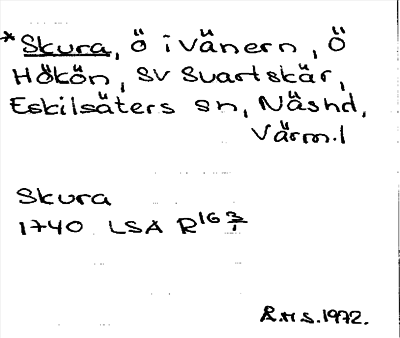 *Skura, Ö i Vänern, Ö
Hökön, SV Svartskär,
Eskilsäters sn, Näshd,
Värm.l
Skura
1740 LSA R16 3/1
R.H.S. 1972.